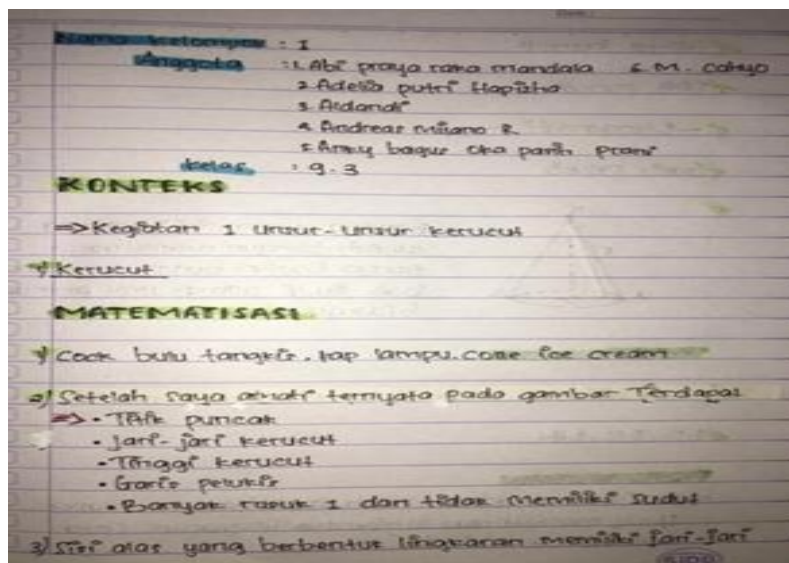 Nama kelompok : I
Anggota : 1. Abi praya raka mandala 6. M. Cahyo
2. Adelia putri Hapizha
3. Aldandi
4. Andreas Milano R.
5. bagus oka
kelas : 9.3
KONTEKS
=> Kegiatan 1 unsur-unsur kerucut
1) Kerucut
MATEMATISASI
1) Cock bulu tangkis. tap lampu. cone ice cream
2) Setelah saya amati ternyata pada gambar Terdapat
=> • Titik puncak
• Jari-jari kerucut
• Tinggi kerucut
• Garis pelukis
• Banyak rusuk 1 dan tidak memiliki sudut
3) Sisi alas yang berbentuk lingkaran memiliki jari-jari
SIDU